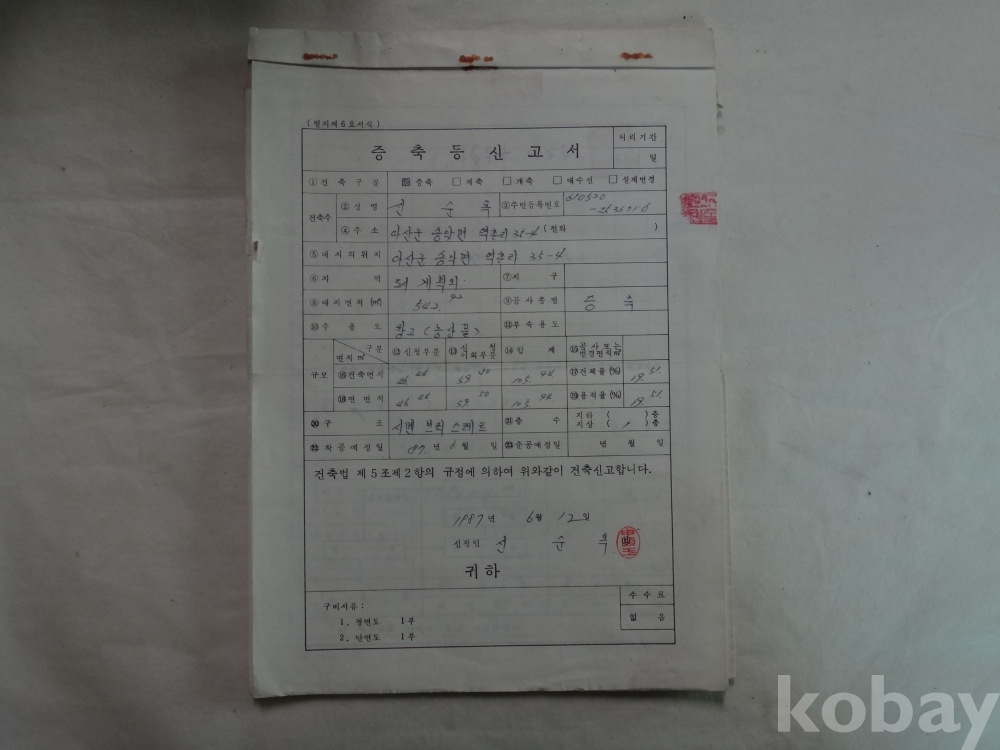 (별지제6호서식)
증축등신고서
처리기간
일
①건축구분 증축 개축 대수선
건축주 ②성명 선 순 옥 ③주민등록번호
④주소 아산군 송악면 역촌리 35-4 (전화 )
⑤대지의위치 아산군 송악면 역촌리 35-4
⑥지역 도시계획외 ⑦지구
⑧대지면적(㎡) 542.90 ⑨공사종별 증축
⑩주용도 창고(농산물) ⑪부속용도
구분
면적㎡ ⑫신청부분 ⑬신청이외부분 ⑭합계 ⑮공사또는변경면적㎡
규모 ⑯건축면적 46.44 59.50 105.94 ⑰건폐율(%) 19.51
⑱연면적 46.44 59.50 105.94 ⑲용적률(%) 19.51
⑳구조 시멘브럭스레트 층수 지하( )층
지상( 1 )층
착공예정일 87년 6월 일 준공예정일 년 월 일
건축법 제5조제2항의 규정에 의하여 위와같이 건축신고합니다.
1987년 6월 12일
신청인 선 순 옥
귀하
수수료
구비서류:
없음
1. 평면도 1부
2. 단면도 1부
kobay